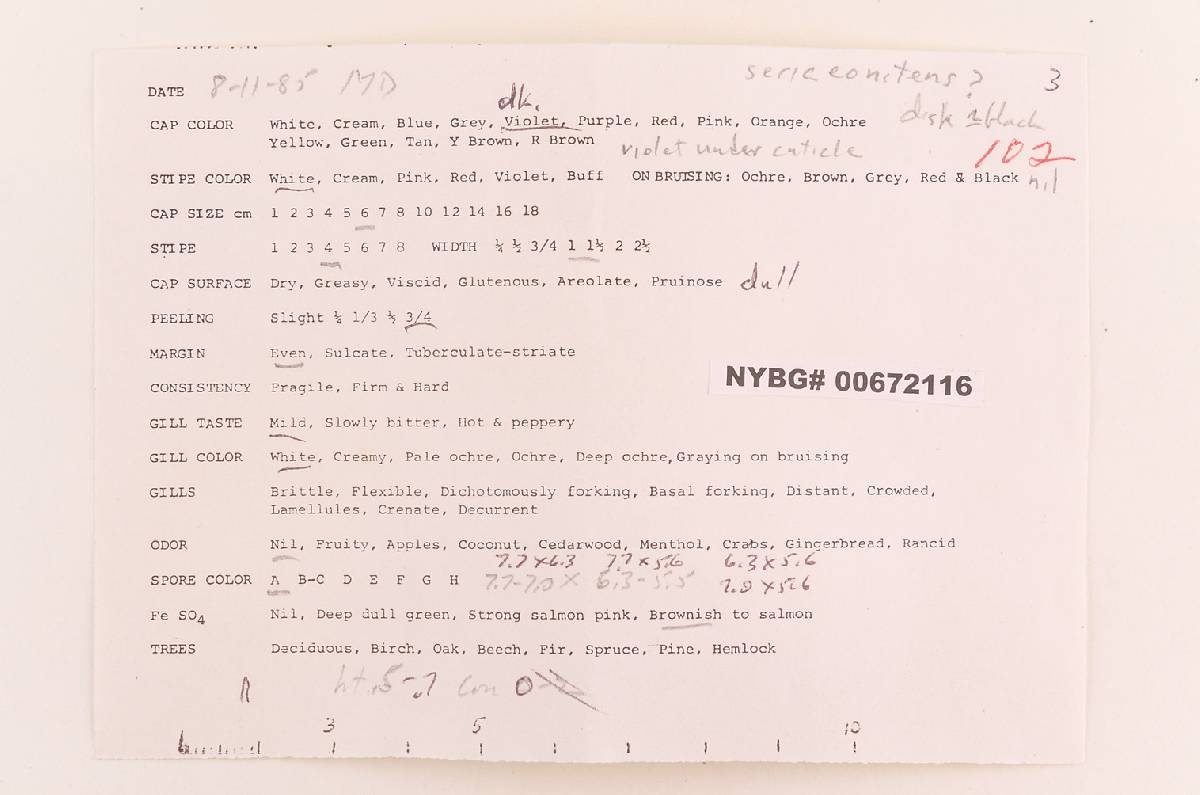 DATE 8-11-85 MD sericeonitens? 3
dk. disk ± black
CAP COLOR White, Cream, Blue, Grey, Violet, Purple, Red, Pink, Orange, Ochre
Yellow, Green, Tan, Y Brown, R Brown violet under cuticle 102
STIPE COLOR White, Cream, Pink, Red, Violet, Buff ON BRUISING: Ochre, Brown, Grey, Red & Black nil
CAP SIZE cm 1 2 3 4 5 6 7 8 10 12 14 16 18
STIPE 1 2 3 4 5 6 7 8 WIDTH ¼ ½ 3/4 1 1½ 2 2½
CAP SURFACE Dry, Greasy, Viscid, Glutenous, Areolate, Pruinose dull
PEELING Slight ¼ 1/3 ½ 3/4
MARGIN Even, Sulcate, Tuberculate-striate
CONSISTENCY Fragile, Firm & Hard
NYBG# 00672116
GILL TASTE Mild, Slowly bitter, Hot & peppery
GILL COLOR White, Creamy, Pale ochre, Ochre, Deep ochre, Graying on bruising
GILLS Brittle, Flexible, Dichotomously forking, Basal forking, Distant, Crowded,
Lamellules, Crenate, Decurrent
ODOR Nil, Fruity, Apples, Coconut, Cedarwood, Menthol, Crabs, Gingerbread, Rancid
7.7 x 6.3 7.7 x 5.6 6.3 x 5.6
SPORE COLOR A B-C D E F G H 7.7-7.0 x 6.3-5.5 7.0 x 5.6
Fe SO4 Nil, Deep dull green, Strong salmon pink, Brownish to salmon
TREES Deciduous, Birch, Oak, Beech, Fir, Spruce, Pine, Hemlock
ht .5-.7 con 0
3 5 10